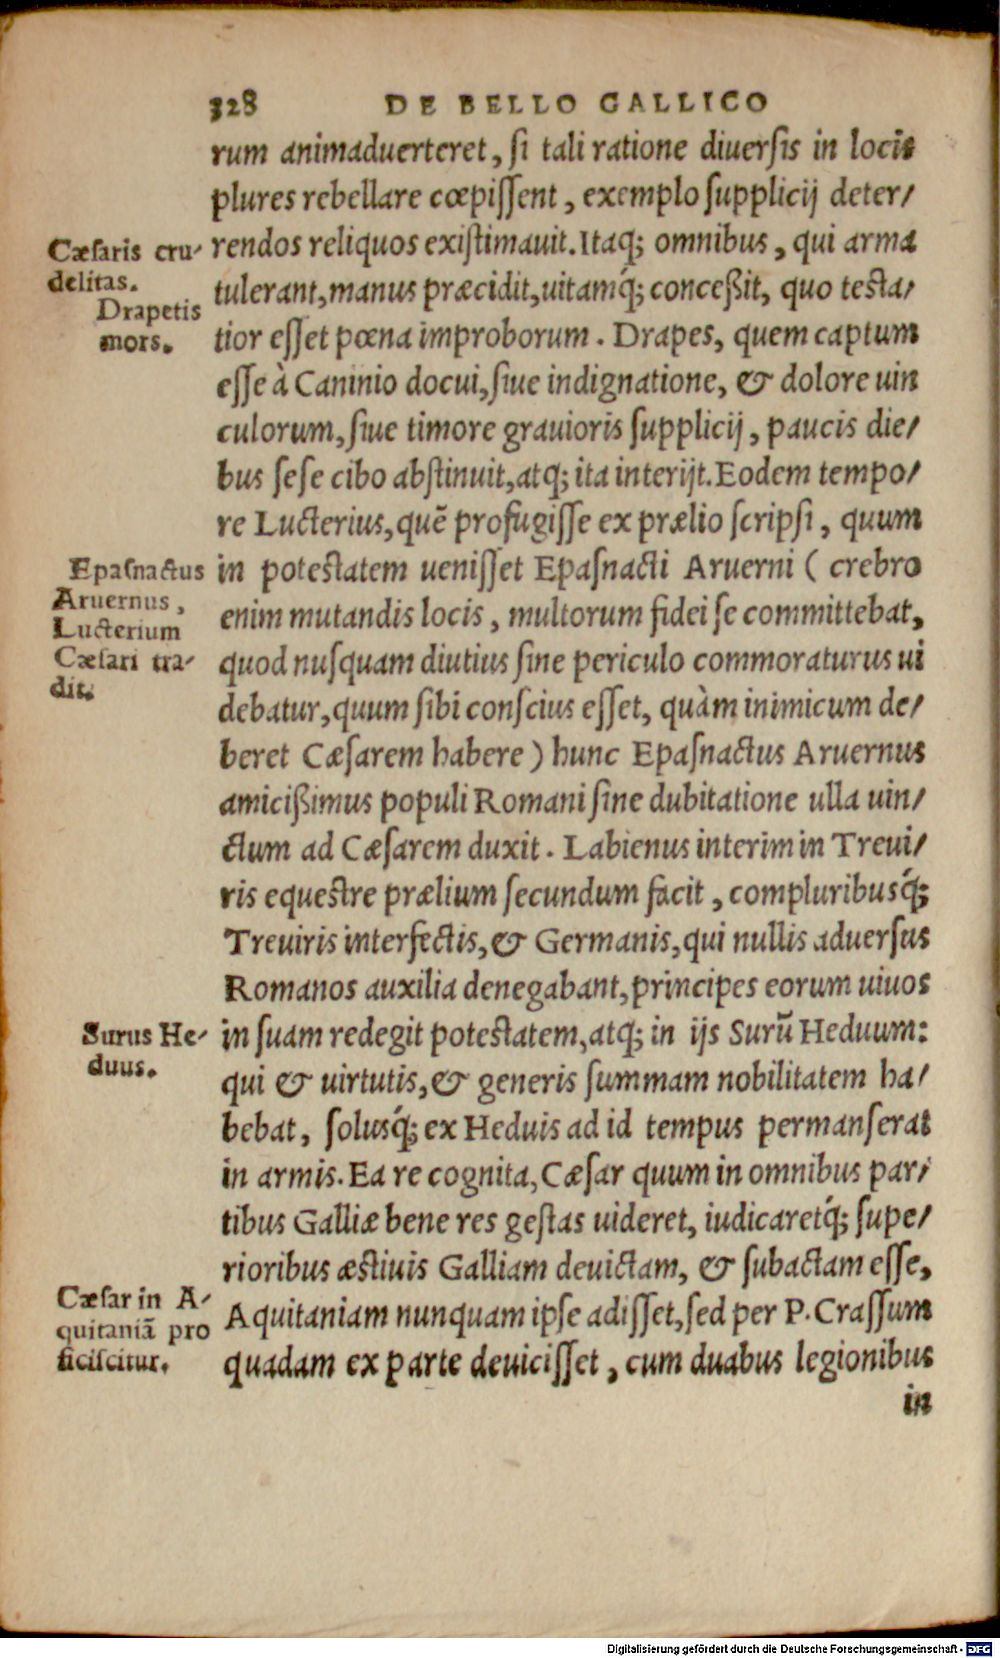 328 DE BELLO GALLICO
rum animaduerteret, ſi tali ratione diuerſis in locis
plures rebellare cœpiſſent, exemplo ſupplicij deter/
rendos reliquos exiſtimauit. Itaq; omnibus, qui arma
tulerant, manus præcidit, uitamq́; conceßit, quo teſta/
tior eſſet pœna improborum. Drapes, quem captum
eſſe à Caninio docui, ſiue indignatione, & dolore uin
culorum, ſiue timore grauioris ſupplicij, paucis die/
bus ſeſe cibo abſtinuit, atq; ita interijt. Eodem tempo/
re Lucterius, quẽ profugiſſe ex prælio ſcripſi, quum
in poteſtatem ueniſſet Epaſnacti Aruerni ( crebro
enim mutandis locis, multorum fidei ſe committebat,
quod nuſquam diutius ſine periculo commoraturus ui
debatur, quum ſibi conſcius eſſet, quàm inimicum de/
beret Cæſarem habere ) hunc Epaſnactus Aruernus
amicißimus populi Romani ſine dubitatione ulla uin/
ctum ad Cæſarem duxit. Labienus interim in Treui/
ris equeſtre prælium ſecundum facit, compluribusq́;
Treuiris interfectis, & Germanis, qui nullis aduerſus
Romanos auxilia denegabant, principes eorum uiuos
in ſuam redegit poteſtatem, atq; in ijs Surũ Heduum:
qui & uirtutis, & generis ſummam nobilitatem ha/
bebat, ſolusq́; ex Heduis ad id tempus permanſerat
in armis. Ea re cognita, Cæſar quum in omnibus par/
tibus Galliæ bene res geſtas uideret, iudicaretq́; ſupe/
rioribus æſtiuis Galliam deuictam, & ſubactam eſſe,
Aquitaniam nunquam ipſe adiſſet, ſed per P. Craſſum
quadam ex parte deuiciſſet, cum duabus legionibus
in
Cæſaris cru-
delitas.
Drapetis
mors.
Epaſnactus
Aruernus,
Lucterium
Cæſari tra-
dit.
Surus He-
duus.
Cæſar in A-
quitaniã pro
ficiſcitur.
Digitalisierung gefördert durch die Deutsche Forschungsgemeinschaft - DFG